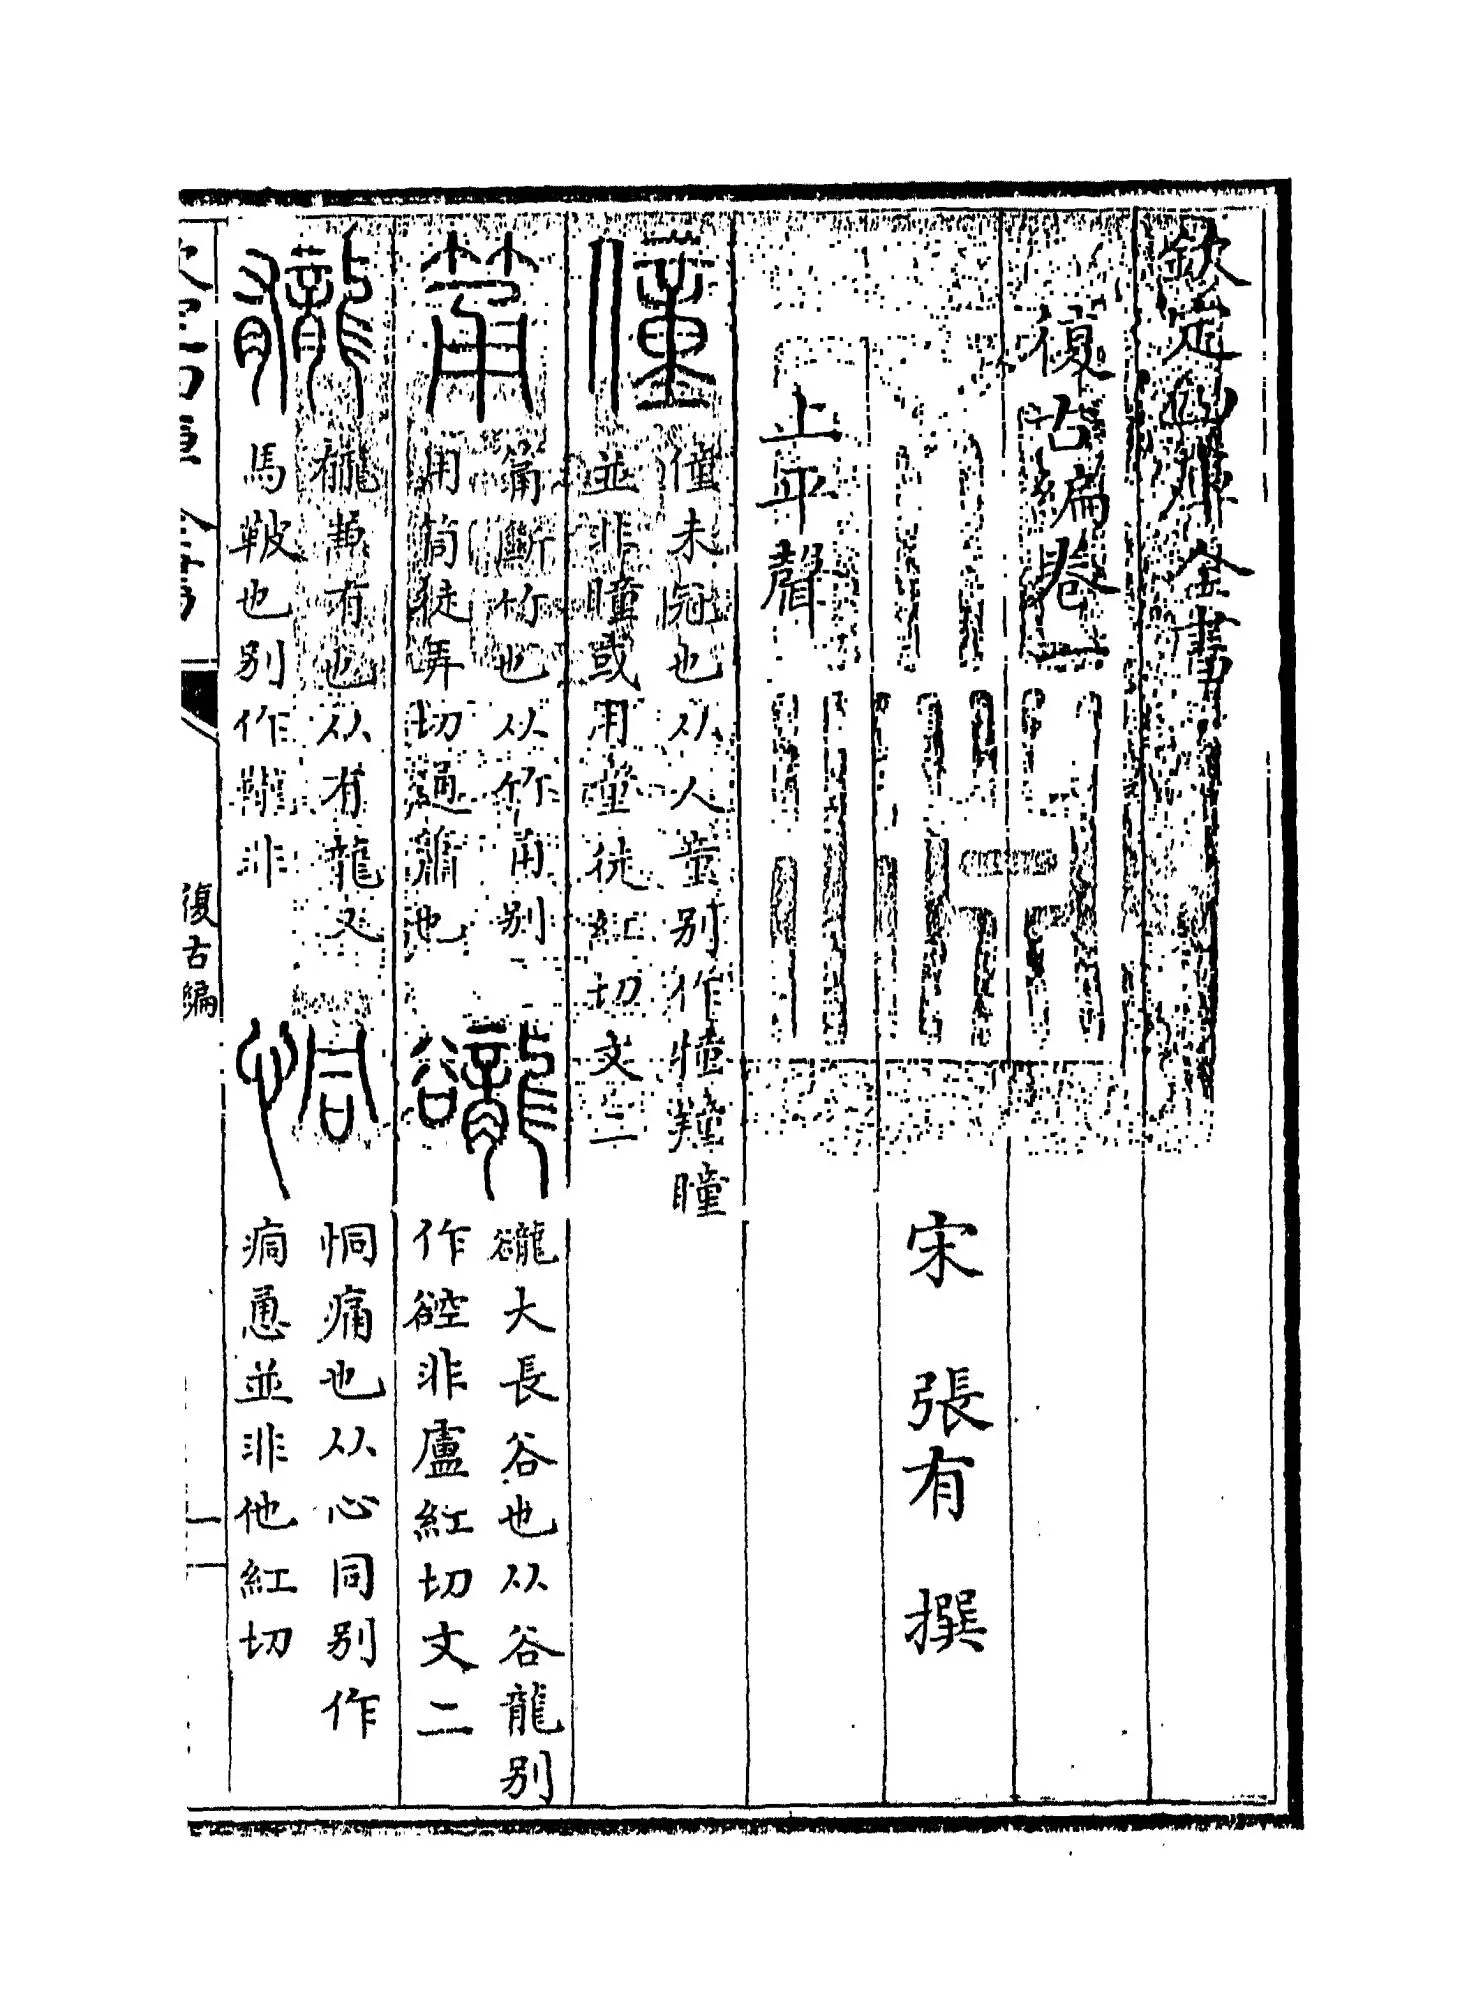 欽定四庫全書
復古編卷一
宋 張有 撰
上平聲
僮
僮未冠也从人童别作瞳
並非瞳或用童徒紅切文二
筩
筩斷竹也从竹甬别
用筒徒弄切通簫也
豅
豅大長谷也从谷龍别
作谾非盧紅切文二
龓
龓兼有也从有龍又
馬鞁也别作非
恫
恫痛也从心同别作
痌恿並非他紅切
欽定四庫全書
復古編
一